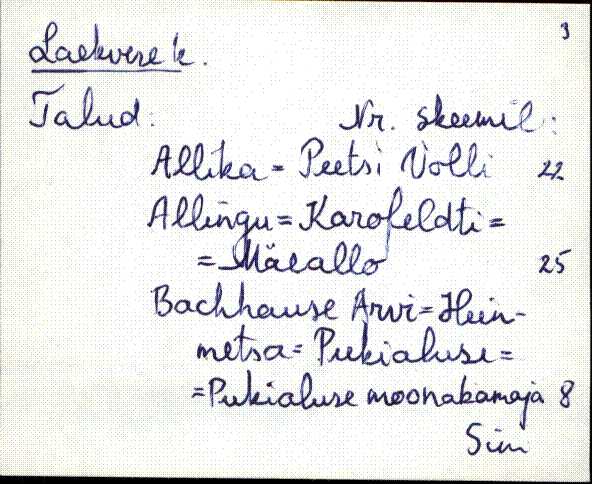 3
Laekvere k.
Talud: Nr. skeemil:
Allika = Peetsi Volli 22
Allingu = Karofeldti =
= Mäeallo 25
Bachhause Arvi = Hein-
metsa = Pukialuse =
= Pukialuse moonakamaja 8
Sim